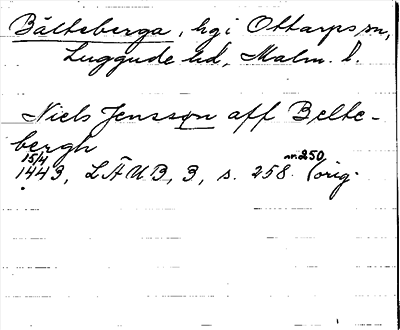 Bälteberga, hg i Ottarps sn,
Luggude hd, Malm. l.
Niels Jensson aff Belte-
bergh
15/4 nr 250
1443, LÄUB, 3, s. 258. (orig.